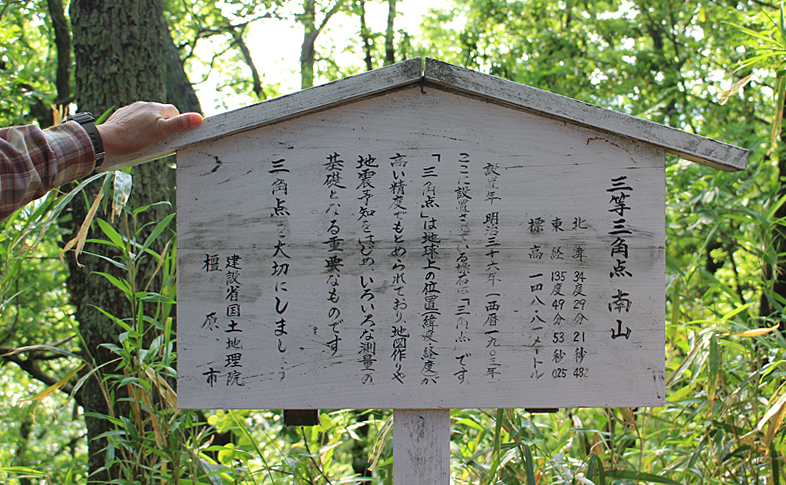 三等三角点 南山
北緯 34度29分21秒482
東経 135度49分53秒025
標高 一四八・八一メートル
設置年 明治三十六年(西暦一九〇三年)
ここに設置されている標石は「三角点」です。
「三角点」は地球上の位置(緯度・経度)が
高い精度でもとめられており、地図作りや
地震予知をはじめ、いろいろな測量の
基礎となる重要なものです
三角点を大切にしましょう
建設省国土地理院
橿原市